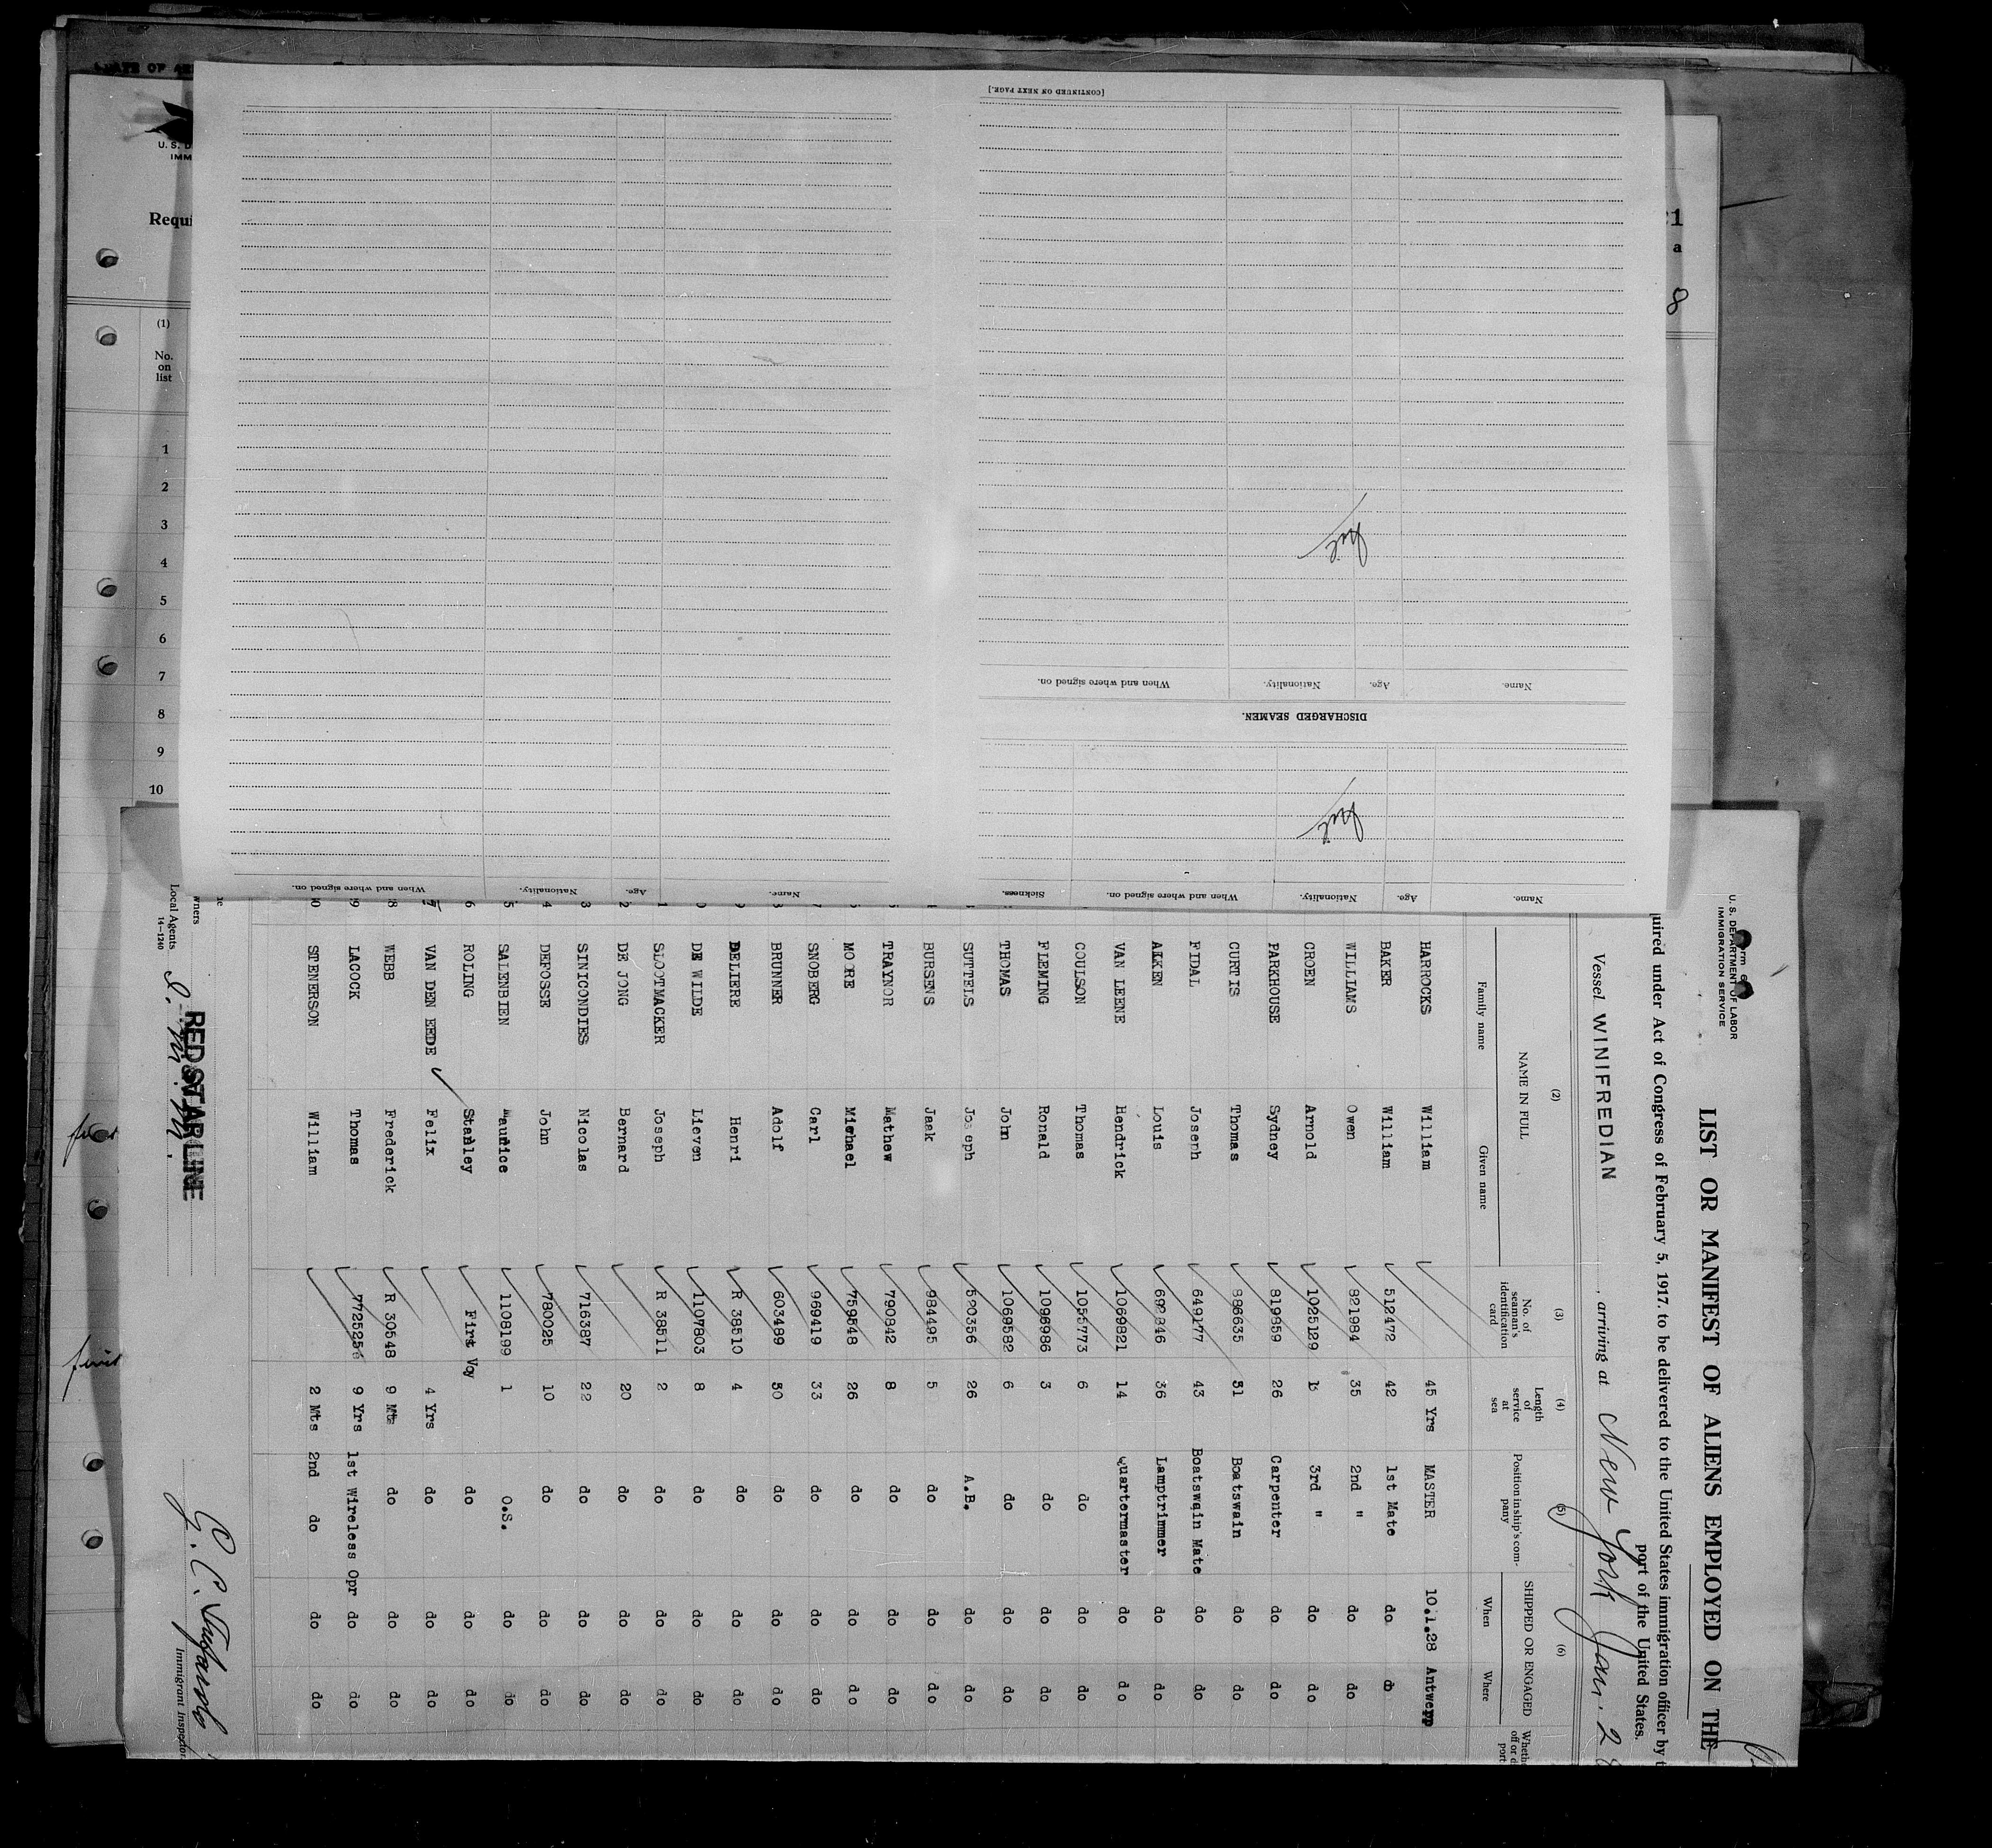 DATE OF
U. S. D
IMM
Requi
(1)
No.
on
list
1
2
3
4
5
6
7
8
9
10
21
a
8
[CONTINUED ON NEXT PAGE.]
When and where signed on. Nationality. Age. Name.
DISCHARGED SEAMEN.
Sickness. When and where signed on. Nationality. Age. Name.
When and where signed on. Nationality. Age. Name.
U. S. DEPARTMENT OF LABOR
IMMIGRATION SERVICE
LIST OR MANIFEST OF ALIENS EMPLOYED ON THE
uired under Act of Congress of February 5, 1917, to be delivered to the United States immigration officer by t
port of the United States.
Vessel WINIFREDIAN , arriving at New York Jan. 2
(2) (3) (4) (5) (6)
NAME IN FULL No. of seaman's identification card Length of service at sea Position in ship's company SHIPPED OR ENGAGED Wheth
off or d
port
Family name Given name When Where
HARROCKS William 45 Yrs MASTER 10.1.28 Antwerp
BAKER William 512472 42 1st Mate do do
WILLIAMS Owen 821984 35 2nd " do do
CROEN Arnold 1025129 3rd " do do
PARKHOUSE Sydney 819859 26 Carpenter do do
CURTIS Thomas 886635 31 Boatswain do do
FIDAL Joseph 649177 43 Boatswain Mate do do
AKKEN Louis 692846 36 Lamptrimmer do do
VAN LEENE Hendrick 1069821 14 Quartermaster do do
COULSON Thomas 1055773 6 do do do
FLEMING Ronald 1096986 3 do do do
THOMAS John 1069582 6 do do do
SUTTELS Joseph 520356 26 A.B. do do
BURSENS Jaak 984495 5 do do do
TRAYNOR Mathew 790842 8 do do do
MOORE Michael 759548 26 do do do
7 SNOBERG Carl 969419 33 do do do
BRUNNER Adolf 603489 30 do do do
9 DELIERE Henri R 38510 4 do do do
0 DE WILDE Lieven 1107803 8 do do do
1 SLOOTMACKER Joseph R 38511 2 do do do
2 DE JONG Bernard 20 do do do
3 SINICONDIES Nicolas 716387 22 do do do
4 DEFOSSE John 780025 10 do do do
5 SALENBIEN Maurice 1108199 1 O.S. do do
6 ROLING Stanley First Voy do do do
7 VAN DEN EEDE Felix 4 Yrs do do do
8 WEBB Frederick R 30548 9 Mts do do do
9 LACOCK Thomas 772525 9 Yrs 1st Wireless Opr do do
0 STENERSON William 2 Mts 2nd do do do
wners
Local Agents
14-1240
RED STAR LINE
Immigrant Inspector.